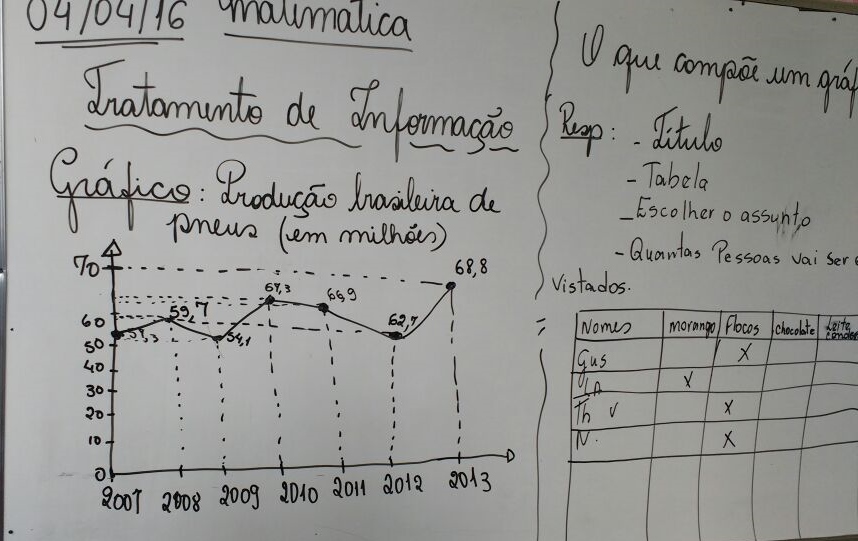 04/04/16 Matimática
Tratamento de Informação
Gráfico: Produção brasileira de
pneus (em milhões)
70
60
50
40
30
20
10
0
57,3
59,7
54,1
67,3
66,9
62,7
68,8
2007 2008 2009 2010 2011 2012 2013
O que compõe um gráf
Resp: - Título
- Tabela
- Escolher o assunto
- Quantas Pessoas vai ser
vistados.
Nomes morango Flocos chocolate Leite
Gus X
X
Th X
N. X